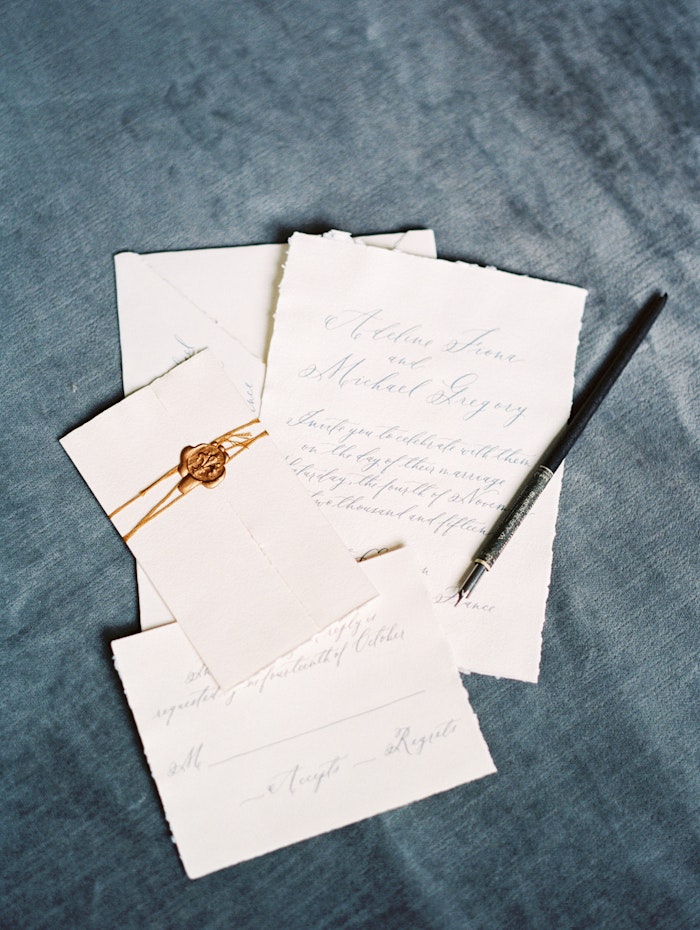 Adeline Fiona
and
Michael Gregory
Invite you to celebrate with them
on the day of their marriage
Saturday, the fourth of Novem
two thousand and fifteen
France
reply is
requested fourteenth of October
M
Accepts Regrets